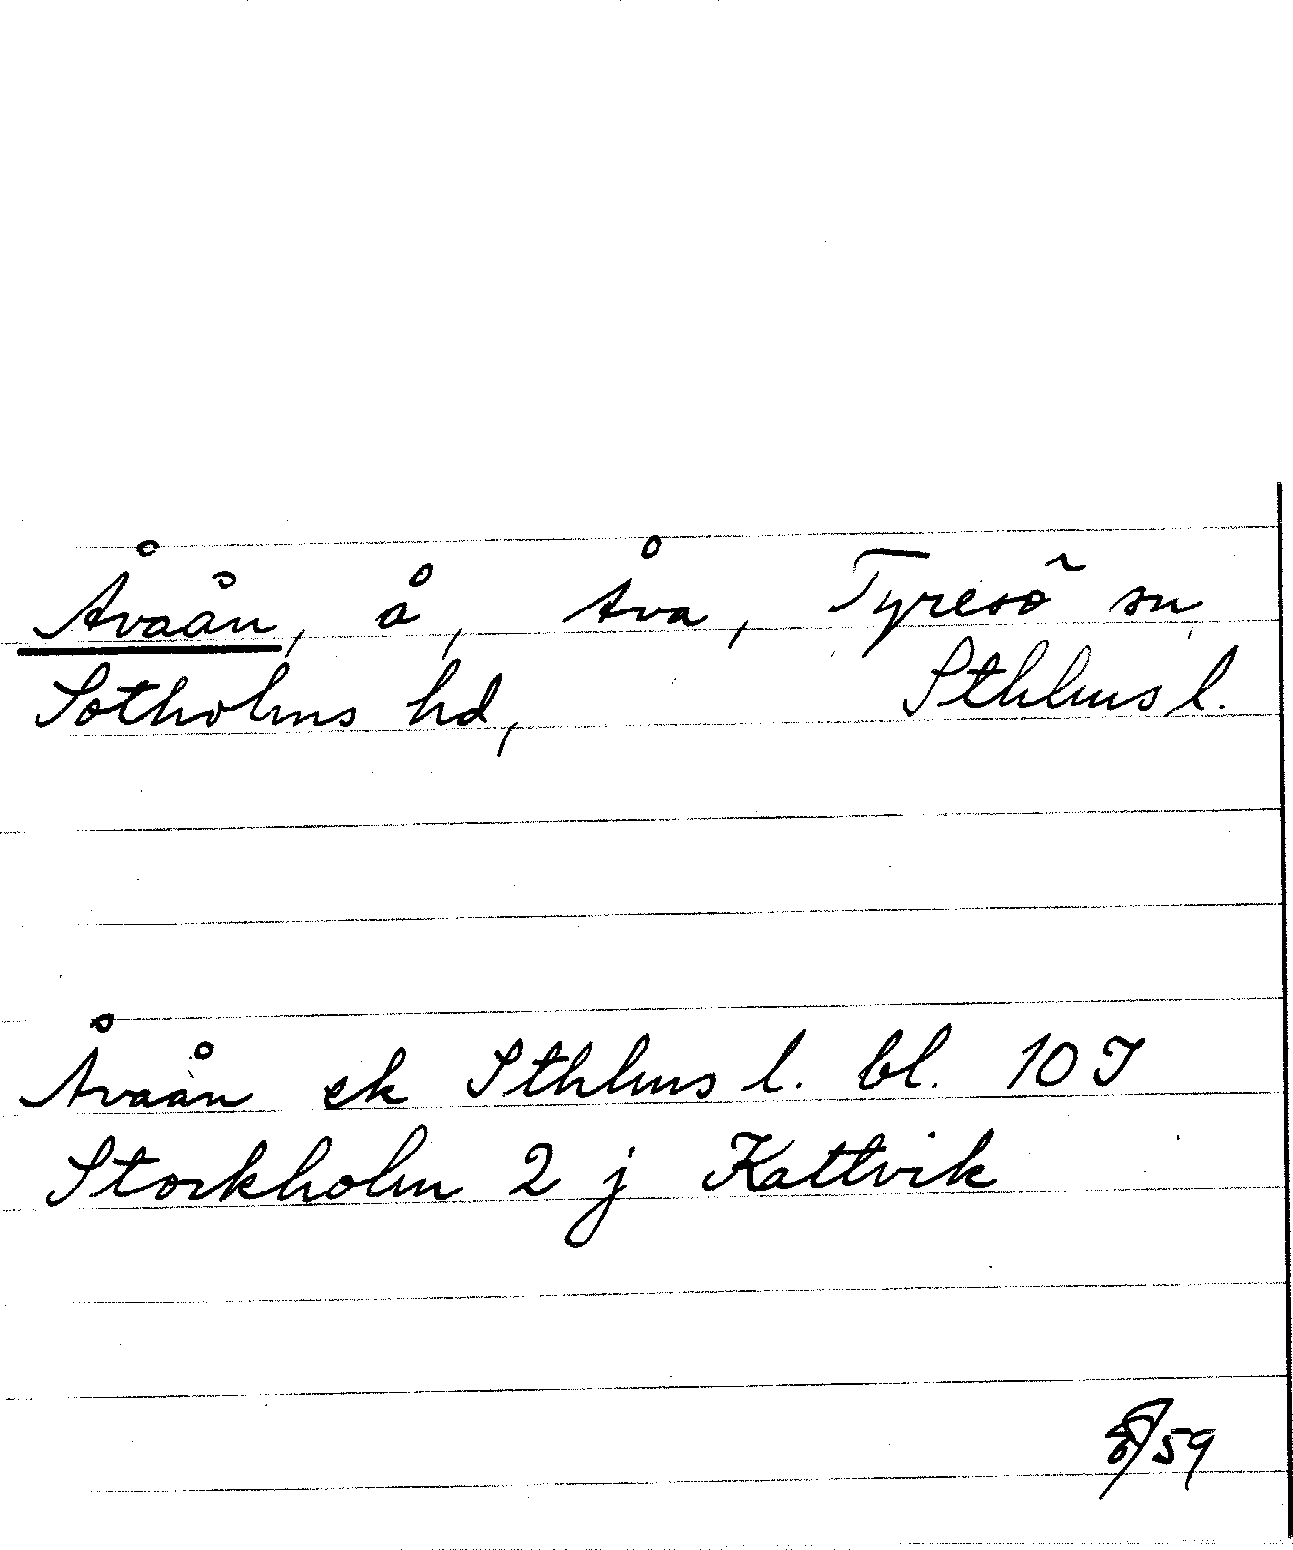 Åvaån, å, Åva, Tyresö sn
Sotholms hd, Sthlms l.
Åvaån ek Sthlms l. bl. 10 I
Stockholm 2 j Kattvik
/59